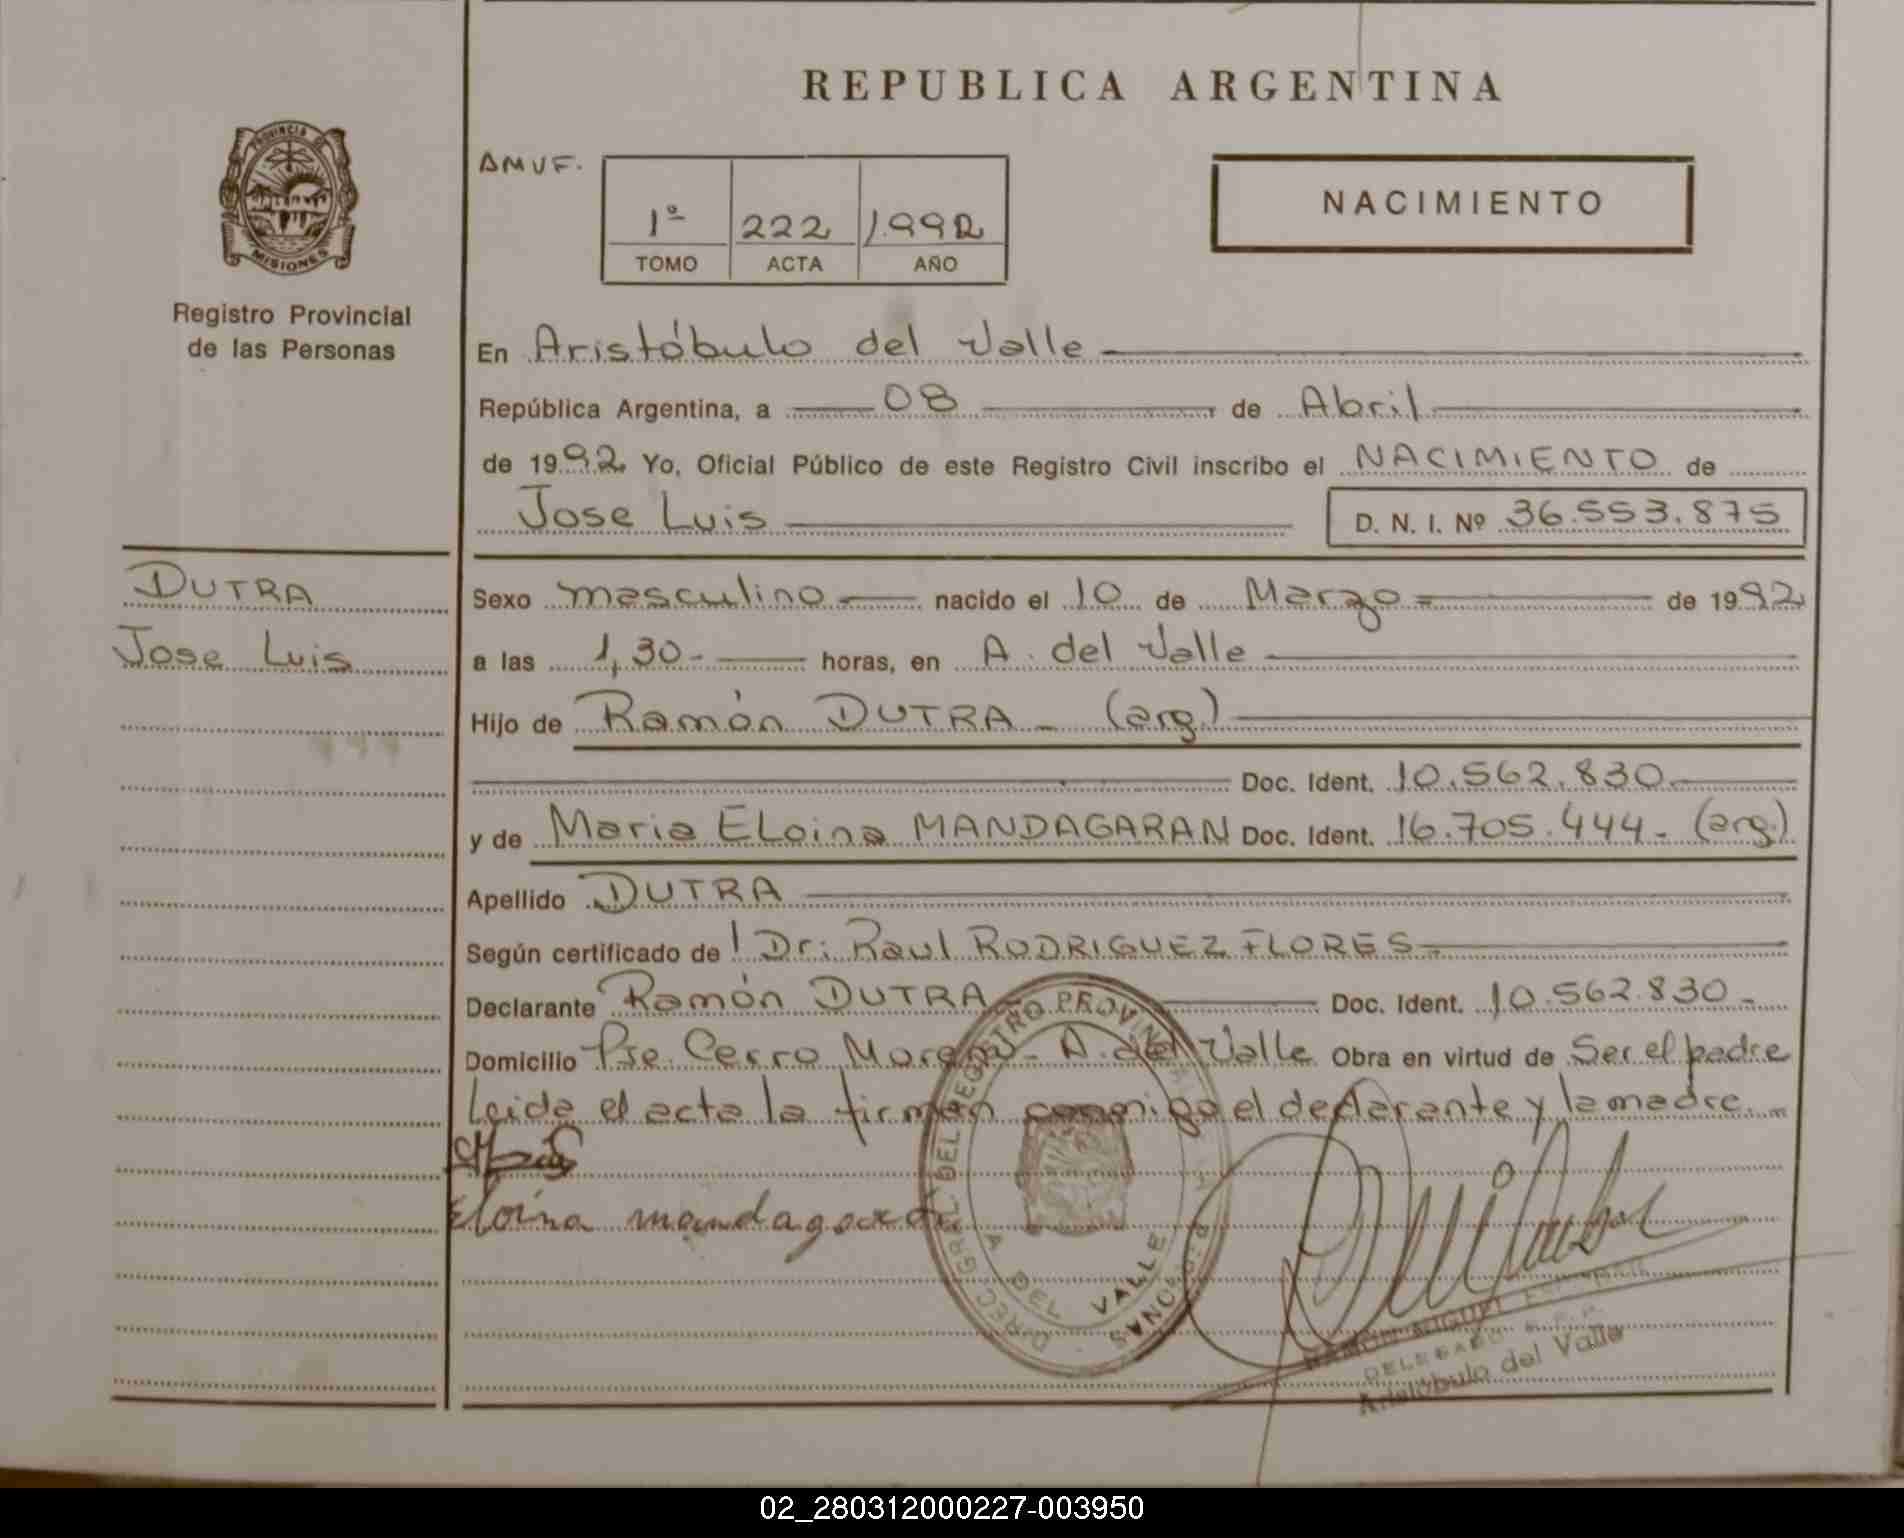 REPUBLICA ARGENTINA
PROVINCIA DE
MISIONES
Registro Provincial
de las Personas
AMUF.
1º 222 1.992
TOMO ACTA AÑO
NACIMIENTO
En Aristóbulo del Valle
República Argentina, a 08 de Abril
de 1992 Yo, Oficial Público de este Registro Civil inscribo el NACIMIENTO de
Jose Luis D. N. I. Nº 36.553.875
DUTRA
Jose Luis
Sexo masculino nacido el 10 de Marzo de 1992
a las 1,30- horas, en A. del Valle
Hijo de Ramón DUTRA - (arg.)
Doc. Ident. 10.562.830
y de Maria ELoina MANDAGARAN Doc. Ident. 16.705.444- (arg.)
Apellido DUTRA
Según certificado de Dr: Raul RODRIGUEZ FLORES
Declarante Ramón DUTRA Doc. Ident. 10.562.830-
Domicilio Pje. Cerro Moreno - A. del Valle Obra en virtud de Ser el padre
Leida el acta la firman conmigo el declarante y la madre.
Eloina mandagaran
DIREC. GRAL. DEL REGISTRO PROVINCIAL DE PERSONAS
A. DEL VALLE
RAMON MIGUEL
DELEGADO R.P.P.
Aristóbulo del Valle
02_280312000227-003950